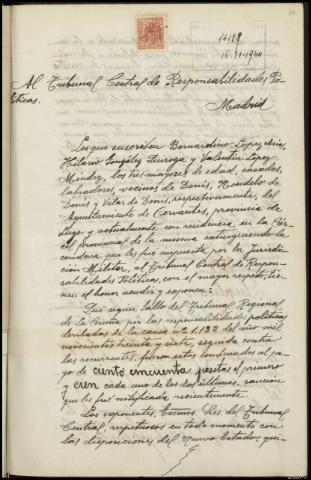 14188
16-XI-1940
Al Tribunal Central de Responsabilidades Po-
líticas.
Madrid
Los que suscriben Bernardino Lopez Arias,
Hilario González Quiroga y Valentin López
Mendez, los tres mayores de edad, casados,
labradores, vecinos de Donis, Rondelo de
Donis y Vilar de Donis, respectivamente, del
Ayuntamiento de Cervantes, provincia de
Lugo y actualmente con residencia en la Cár-
cel provincial de la misma extinguiendo la
condena que les fué impuesta por la Jurisdic-
ción Militar, al Tribunal Central de Respon-
sabilidades Políticas, con el mayor respeto, tie-
nen el honor acudir y exponen:
Que según fallo del Tribunal Regional
de La Coruña por las responsabilidades políticas
derivadas de la causa nº 1.132 del año mil
novecientos treinta y siete, seguida contra
los recurrentes, fueron estos condenados al pa-
go de ciento cincuenta pesetas el primero
y cien cada uno de los dos últimos, sancion
que les fué notificada recientemente.
Los exponentes, Excmos. Sres. del Tribunal
Central, respetuosos en todo momento con
las disposiciones del Nuevo Estado, qui-